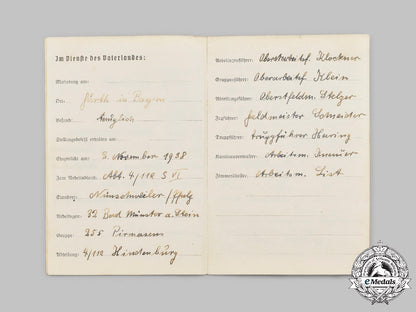 Im Dienste des Vaterlandes:
Musterung am:
Ort: Fürth in Bayern
Befund: tauglich
Stellungsbefehl erhalten am:
Eingerückt am: 3. November 1938
Zum Arbeitsdienst: Abt. 4/112 S VI
Standort: Nünschweiler / Pfalz
Arbeitsgau: 32 Bad Münster a. Stein
Gruppe: 255 Pirmasens
Abteilung: 4/112 Hindenburg
Arbeitsgauführer: Oberstarbeitsf. Klockner
Gruppenführer: Oberarbeitsf. Klein
Abteilungsführer: Oberstfeldm. Stelzer
Zugführer: Feldmeister Schneider
Truppführer: Truppführer Haring
Kameradschaftsführer: Arbeitsm.
Zimmerältester: Arbeitsm. List
eMedals